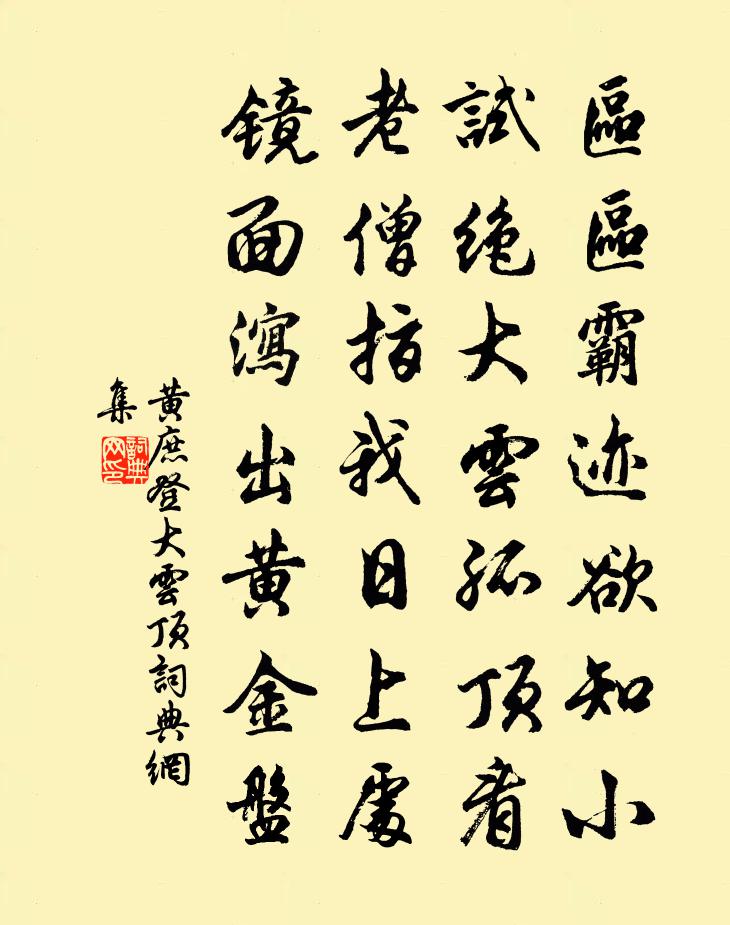 區區霸迹欲知小
試絶大雲孤頂看
老僧指我日上處
鏡面瀉出黄金盤
黄庶登大雲頂詞典網
集
詞典
网印